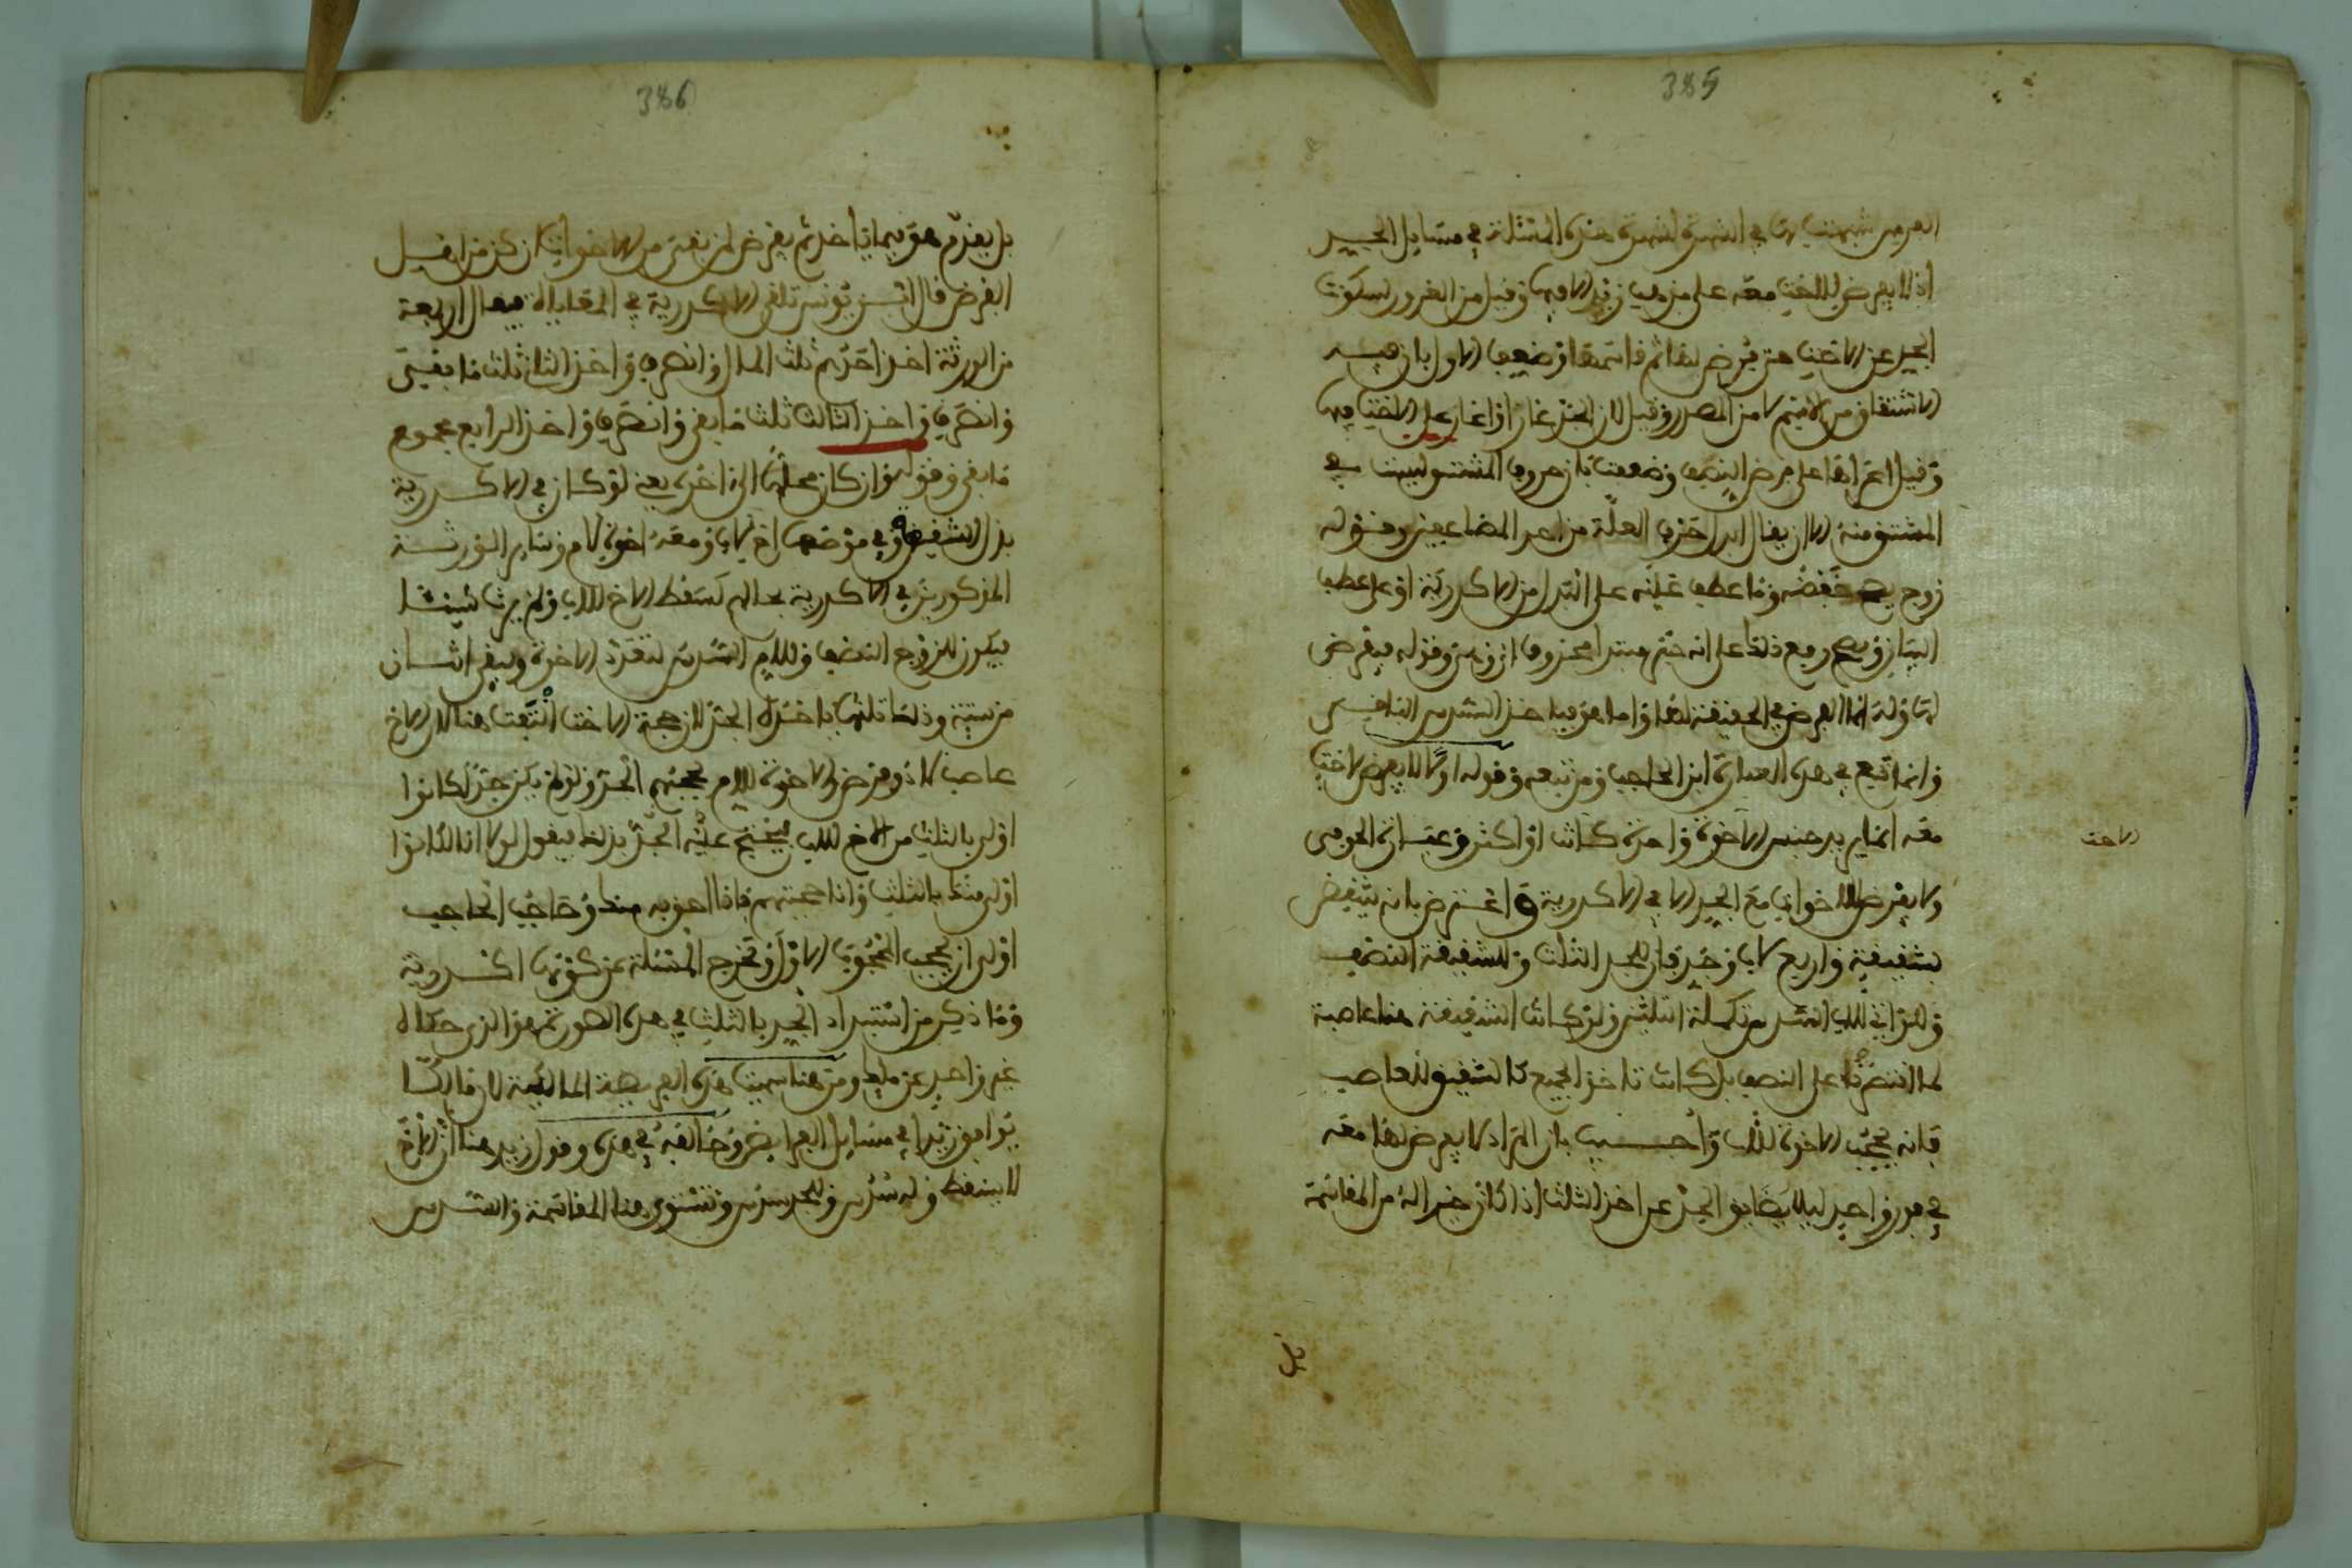 385
الفرس شبهت بها في الشهرة لشهرة هذه المسئلة في مسايل الجد
اذ لا يفرض للاخت معه على مذهب زيد الا فيها وقيل من الغرور لسكوت
الجد عن الاخت حتى فرض لها ثم قاسمها وضعف الاول بان فيه
الاشتقاق من الاسم لا من المصدر وقيل لان الجد غار او اغار على الاخت فيها
وقيل اغراها على فرض النصف وضعفت بان حروف المشتق ليست في
المشتق منه الا ان يقال ابدل حرف العلة من احد المضاعفين وقوله
زوج يصح خفضه وما عطف عليه على البدل من الاكدرية او على عطف
البيان ويصح رفع ذلك على انه خبر مبتدا محذوف اي وهي وقوله فيفرض
لها وله انما الفرض في الحقيقة لها واما هو فياخذ السدس الناقص
وانما تبع في هذه العبارة ابن الحاجب ومن تبعه وقوله اولا لا يفرض لاخت
معه انما يريد جنس الاخوة واحدة كانت او اكثر وعبارة الحوفي
ولا يفرض للاخوات مع الجد الا في الاكدرية واعترض بانه ينتقض
بشقيقة واربع لاب وجد فان للجد الثلث وللشقيقة النصف
وللواتي للاب السدس تكملة الثلثين ولو كانت الشقيقة هنا عاصبة
لما اقتصر لها على النصف بل كانت تاخذ الجميع كالشقيق العاصب
فانه يحجب الاخوة للاب واجيب بان المراد لا يفرض لها معه
في فور واحد ليلا يضايق الجد عن اخذ الثلث اذا كان خيرا له من المقاسمة
الاخت
بل
386
بل يقدم هو فيما ياخذ ثم يفرض لمن بقي من الاخوات ان كن من اهل
الفرض قال ابن يونس تلقى الاكدرية في المقاياة فيقال اربعة
من الورثة اخذ احدهم ثلث المال وانصرف واخذ الثاني ثلث ما بقي
وانصرف واخذ الثالث ثلث ما بقي وانصرف واخذ الرابع مجموع
ما بقي وقوله وان كان محلها الى اخره يعني لو كان في الاكدرية
بدل الشقيقة وفي موضعها اخ لاب ومعه اخوة لام وساير الورثة
المذكورين في الاكدرية بحالهم لسقط الاخ للاب ولم يرث شيئا
فيكون للزوج النصف وللام السدس لتعدد الاخوة ويبقى اثنان
من ستة وذلك ثلثها ياخذه الجد لان جهة الاخت انتفت هنا لان الاخ
عاصب لا ذو فرض والاخوة للام يحجبهم الجد ولو لم يكن جد لكانوا
اولى بالثلث من الاخ للاب فيحتج عليه الجد بذلك فيقول لولا انا لكانوا
اولى منك بالثلث وانا حجبتهم فانا احق به منك وحاجب الحاجب
اولى ان يحجب المحجوب الاول وتخرج المسئلة عن كونها اكدرية
وما ذكر من استبداد الجد بالثلث في هذه الصورة هو الذي حكاه
غير واحد عن ملك ومن هنا سميت هذه الفريضة المالكية لان مالكا
يوافق زيدا في مسايل الفرايض وخالفه في هذه وقول زيد هنا ان الاخ
لا يسقط وله سدس وللجد سدس وتستوي هنا المقاسمة والسدس